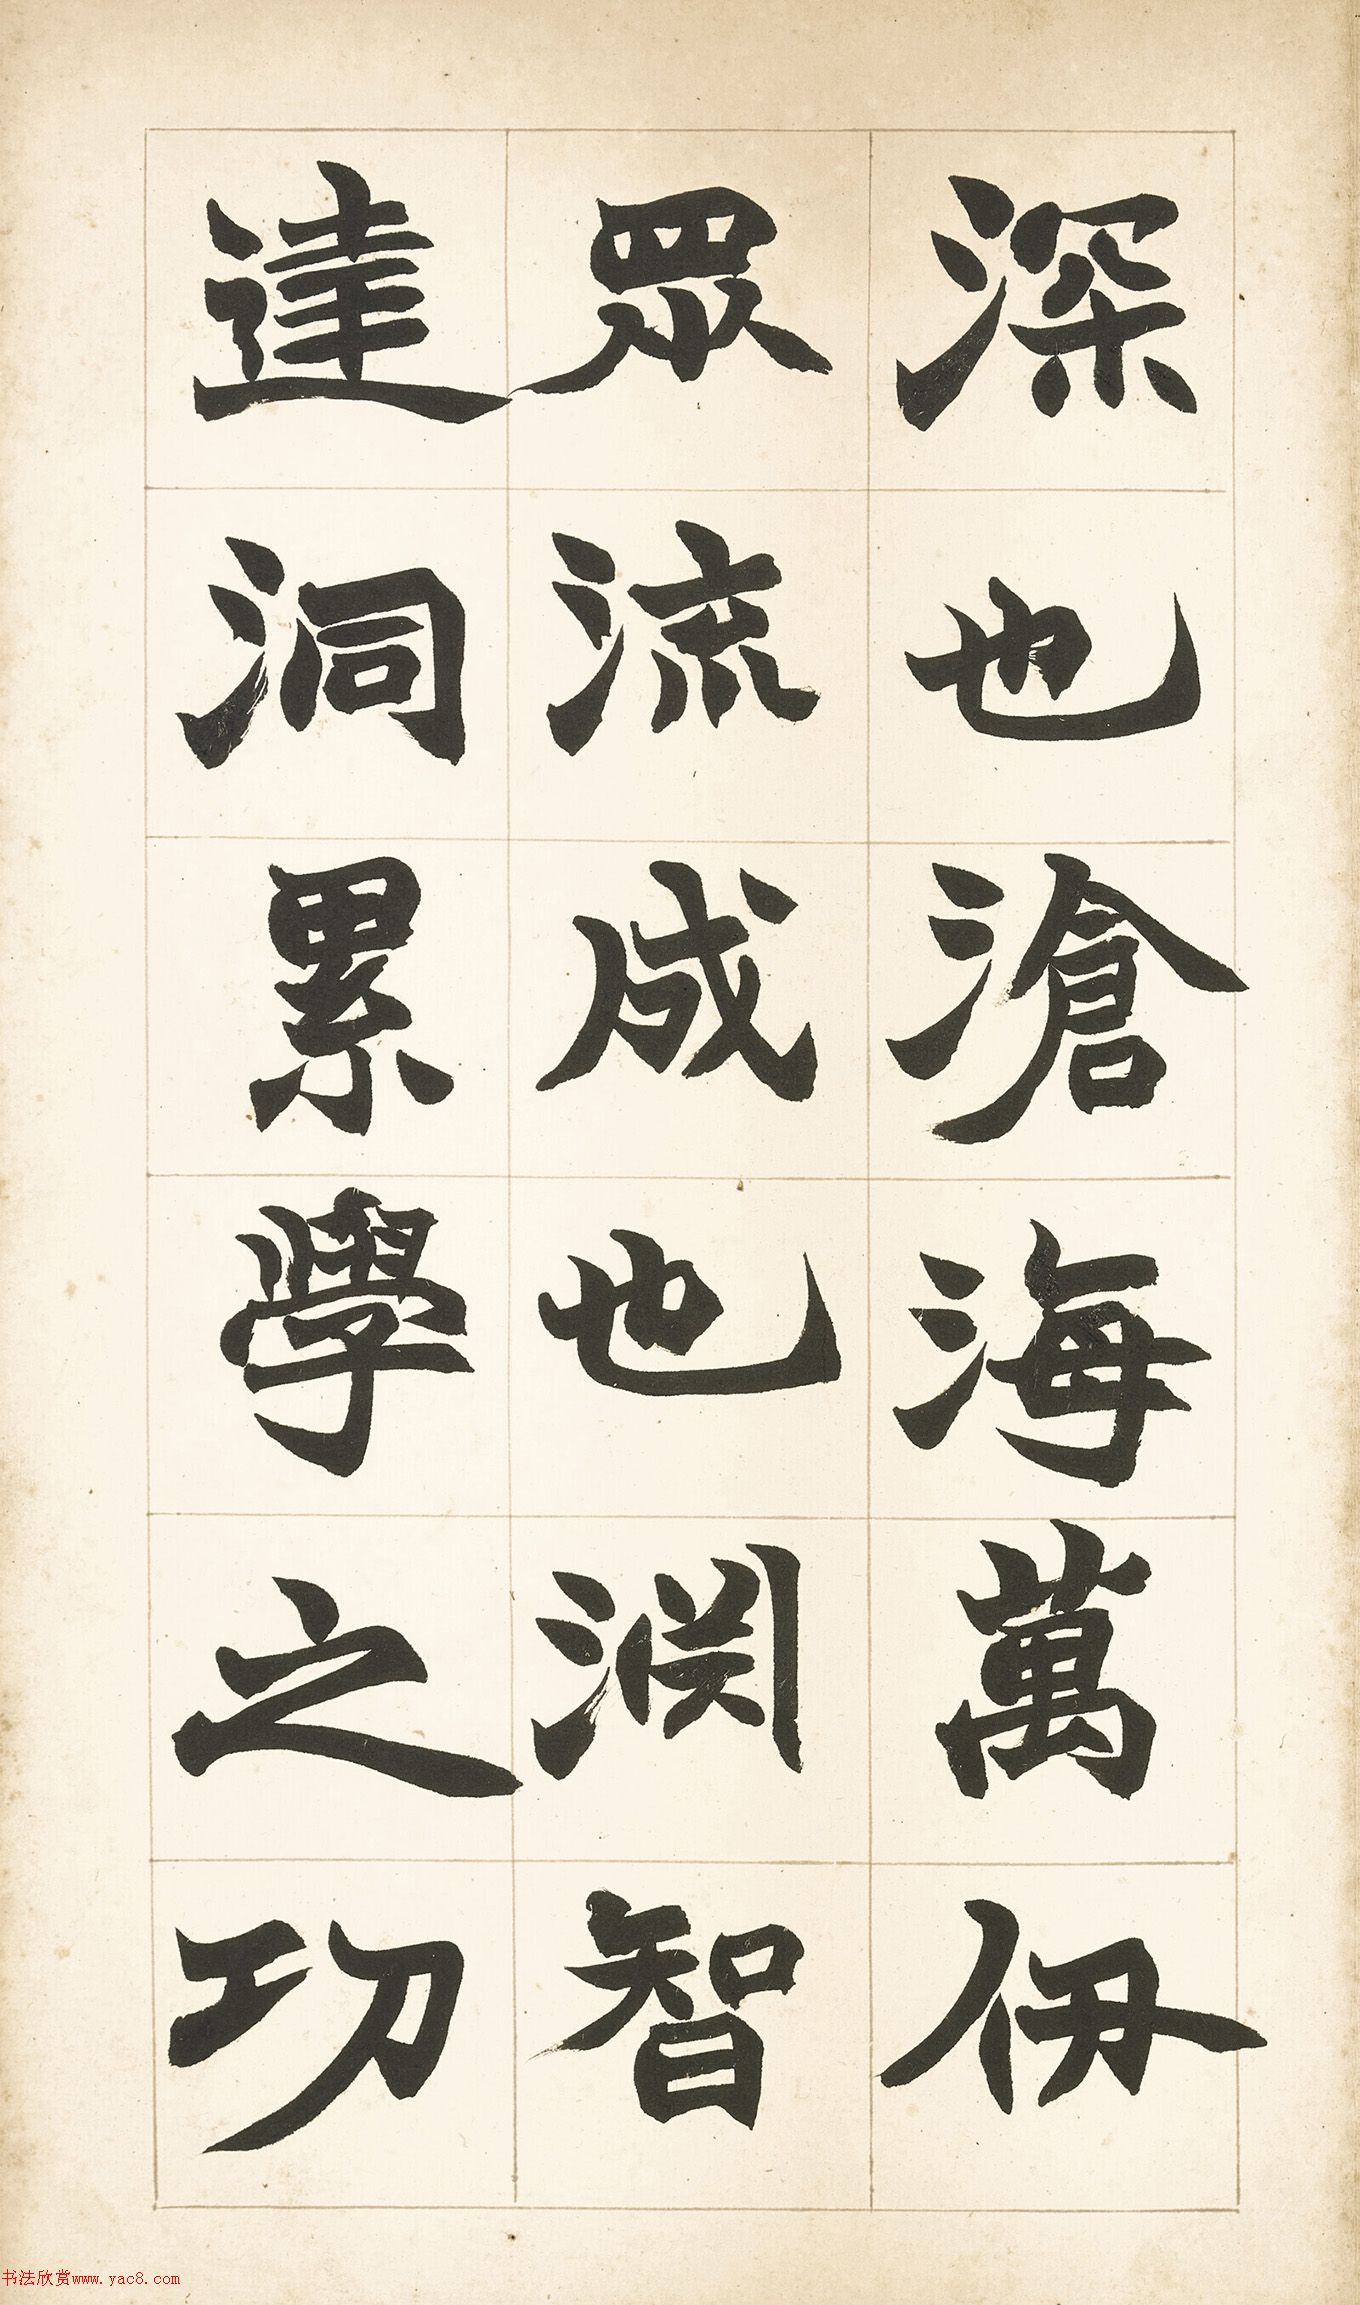 深也滄海萬仞
眾流成也淵智
達洞累學之功
书法欣赏www.yac8.com